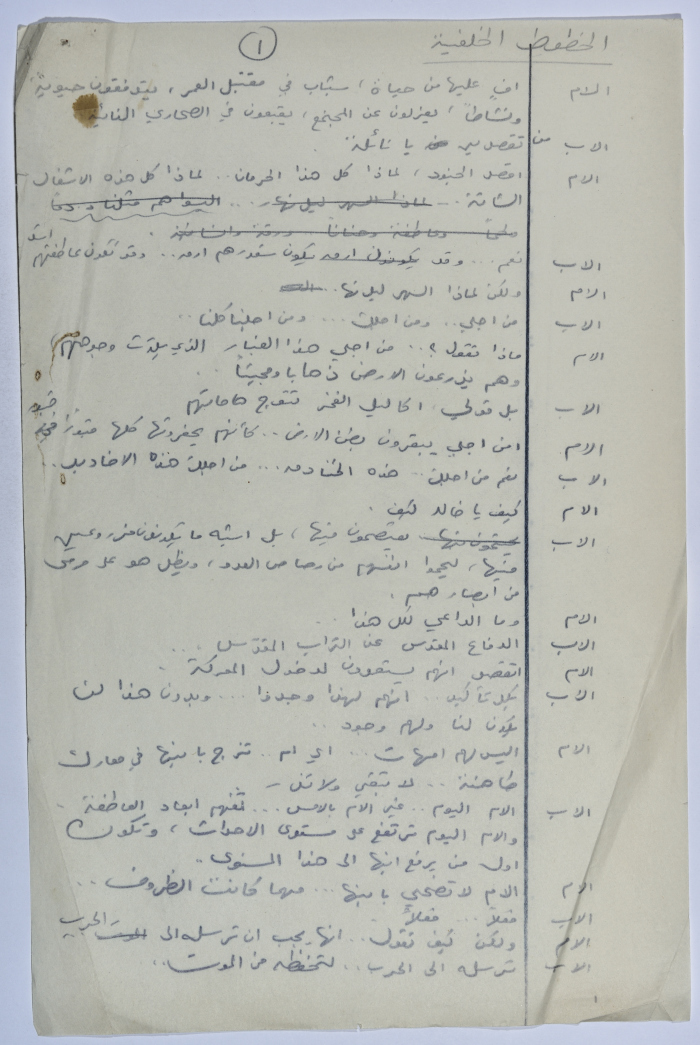 ١
الخطوط الخلفية
الام افٍ عليها من حياة، شباب في مقتبل العمر، يتدفقون حيوية،
ونشاطاً، يعزلون عن المجتمع، يقبعون في الصحاري النائية
الاب من تقصدين يا نائلة
الام اقصد الجنود، لماذا كل هذا الحرمان.. لماذا كل هذه الاشغال
الشاقة... لماذا السهر ليل نهار... اليسوا هم مثلنا
وعاطفة وحناناً
الاب نعم... وقد يكونون ارق يكون شعورهم ارق.. وقد تكون عاطفتهم اشد
الام ولكن لماذا السهر ليل نها..
الاب من اجلي.. ومن اجلك... ومن اجلنا كلنا..
الام ماذا تقول؟.. من اجلي هذا الغبار الذي وجوههم
وهم يذرعون الارض ذهابا ومجيئاً..
الاب بل قولي، اكاليل الفخر تتوج هاماتهم
الام امن اجلي يبقرون بطن الارض.. كأنهم يحفرونها كلها
الاب نعم من اجلك.. هذه الخنادق... من اجلك هذه الاخاديد..
الام كيف يا خالد كيف.
الاب يعتصمون فيها، بل اشبه ما
فيها، ليحموا انفسهم من رصاص العدو، ويظل هو على مرمى
من أبصارهم.
الام وما الداعي لكل هذا..
الاب الدفاع المقدس عن التراب المقدّس...
الام اتقصد انهم يستعدون لدخول المعركة.
الاب بكل تأكيد.. انهم لهذا وجدوا... وبدون هذا لن
يكون لنا ولهم وجود..
الام اليس لهم امهات... اي ام.. تزج بابنها في معارك
طاحنة.. لا تبقي ولا تذر
الاب الام اليوم.. غير الام بالامس... تفهم ابعاد العاطفة.
والام اليوم ترتفع على مستوى الاحداث، وتكون
اول من يرفع ابنها الى هذا المستوى..
الام الام لا تضحي بابنها... مهما كانت الظروف..
الاب فعلاً... فعلاً.
الام ولكن كيف تقول... انها يجب ان ترسله الى الحرب
الاب ترسله الى الحرب.. لتحفظه من الموت..
١